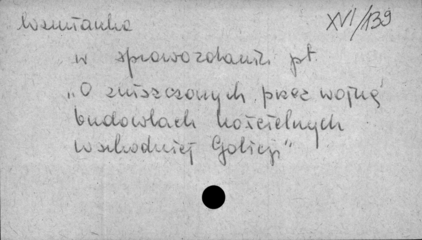 Wzmianka
XVI/139
w sprawozdaniu pt.
„O zniszczonych przez wojnę
budowlach kościelnych
wschodniej Galicji"